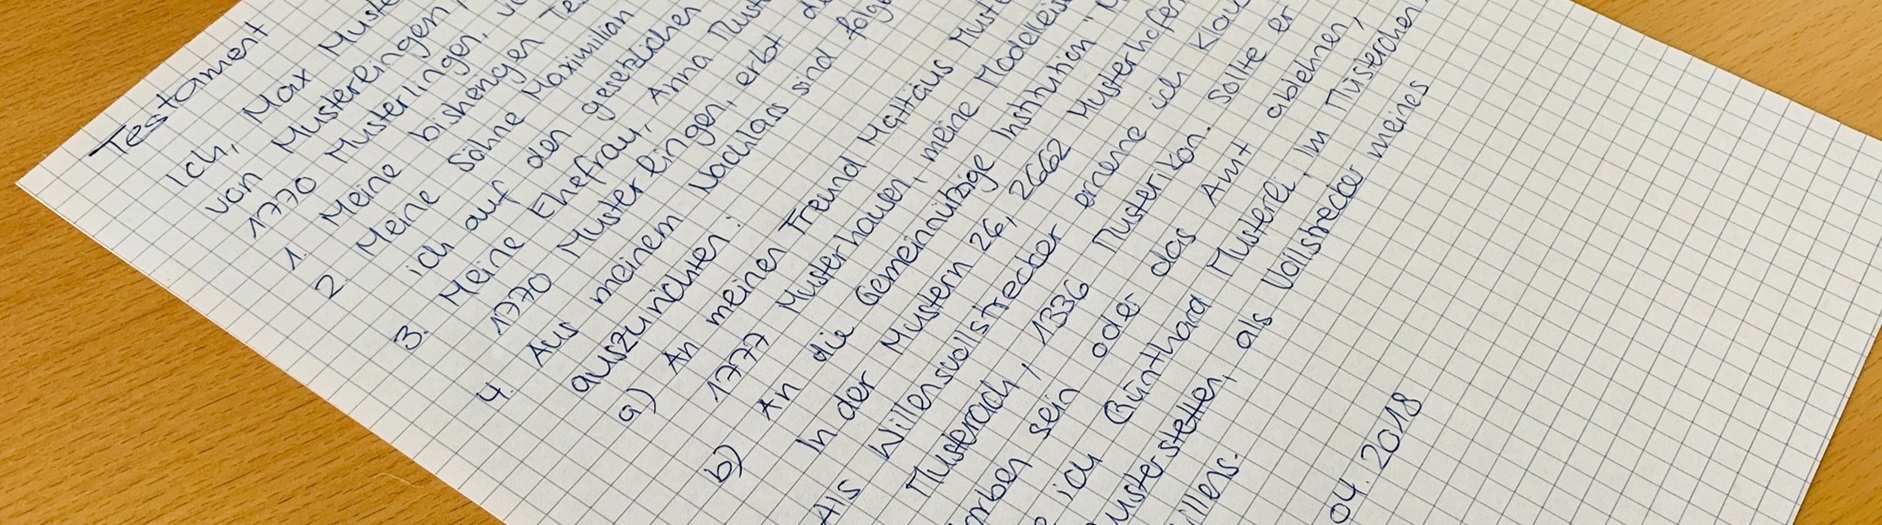 Testament
Ich, Max Muste
von Musterlingen,
1770 Musterlingen, v
1. Meine bisherigen Te
2 Meine Söhne Maximilian
ich auf den gesetzlichen
3. Meine Ehefrau, Anna Must
1770 Musterlingen, erbt d
4. Aus meinem Nachlass sind folg
auszurichten:
a) An meinen Freund Mattäus Muste
1777 Musterhausen, meine Modelleis
b) An die Gemeinnützige Institution "M
In der Mustern 26, 2662 Musterhofen
Als Willensvollstrecker ernenne ich Klau
Musterach, 1336 Musterikon. Sollte er
orben sein oder das Amt ablehnen,
e ich Günthard Musterli, Im Müsterchen
usterstetten, als Vollstrecker meines
illens.
04. 2018